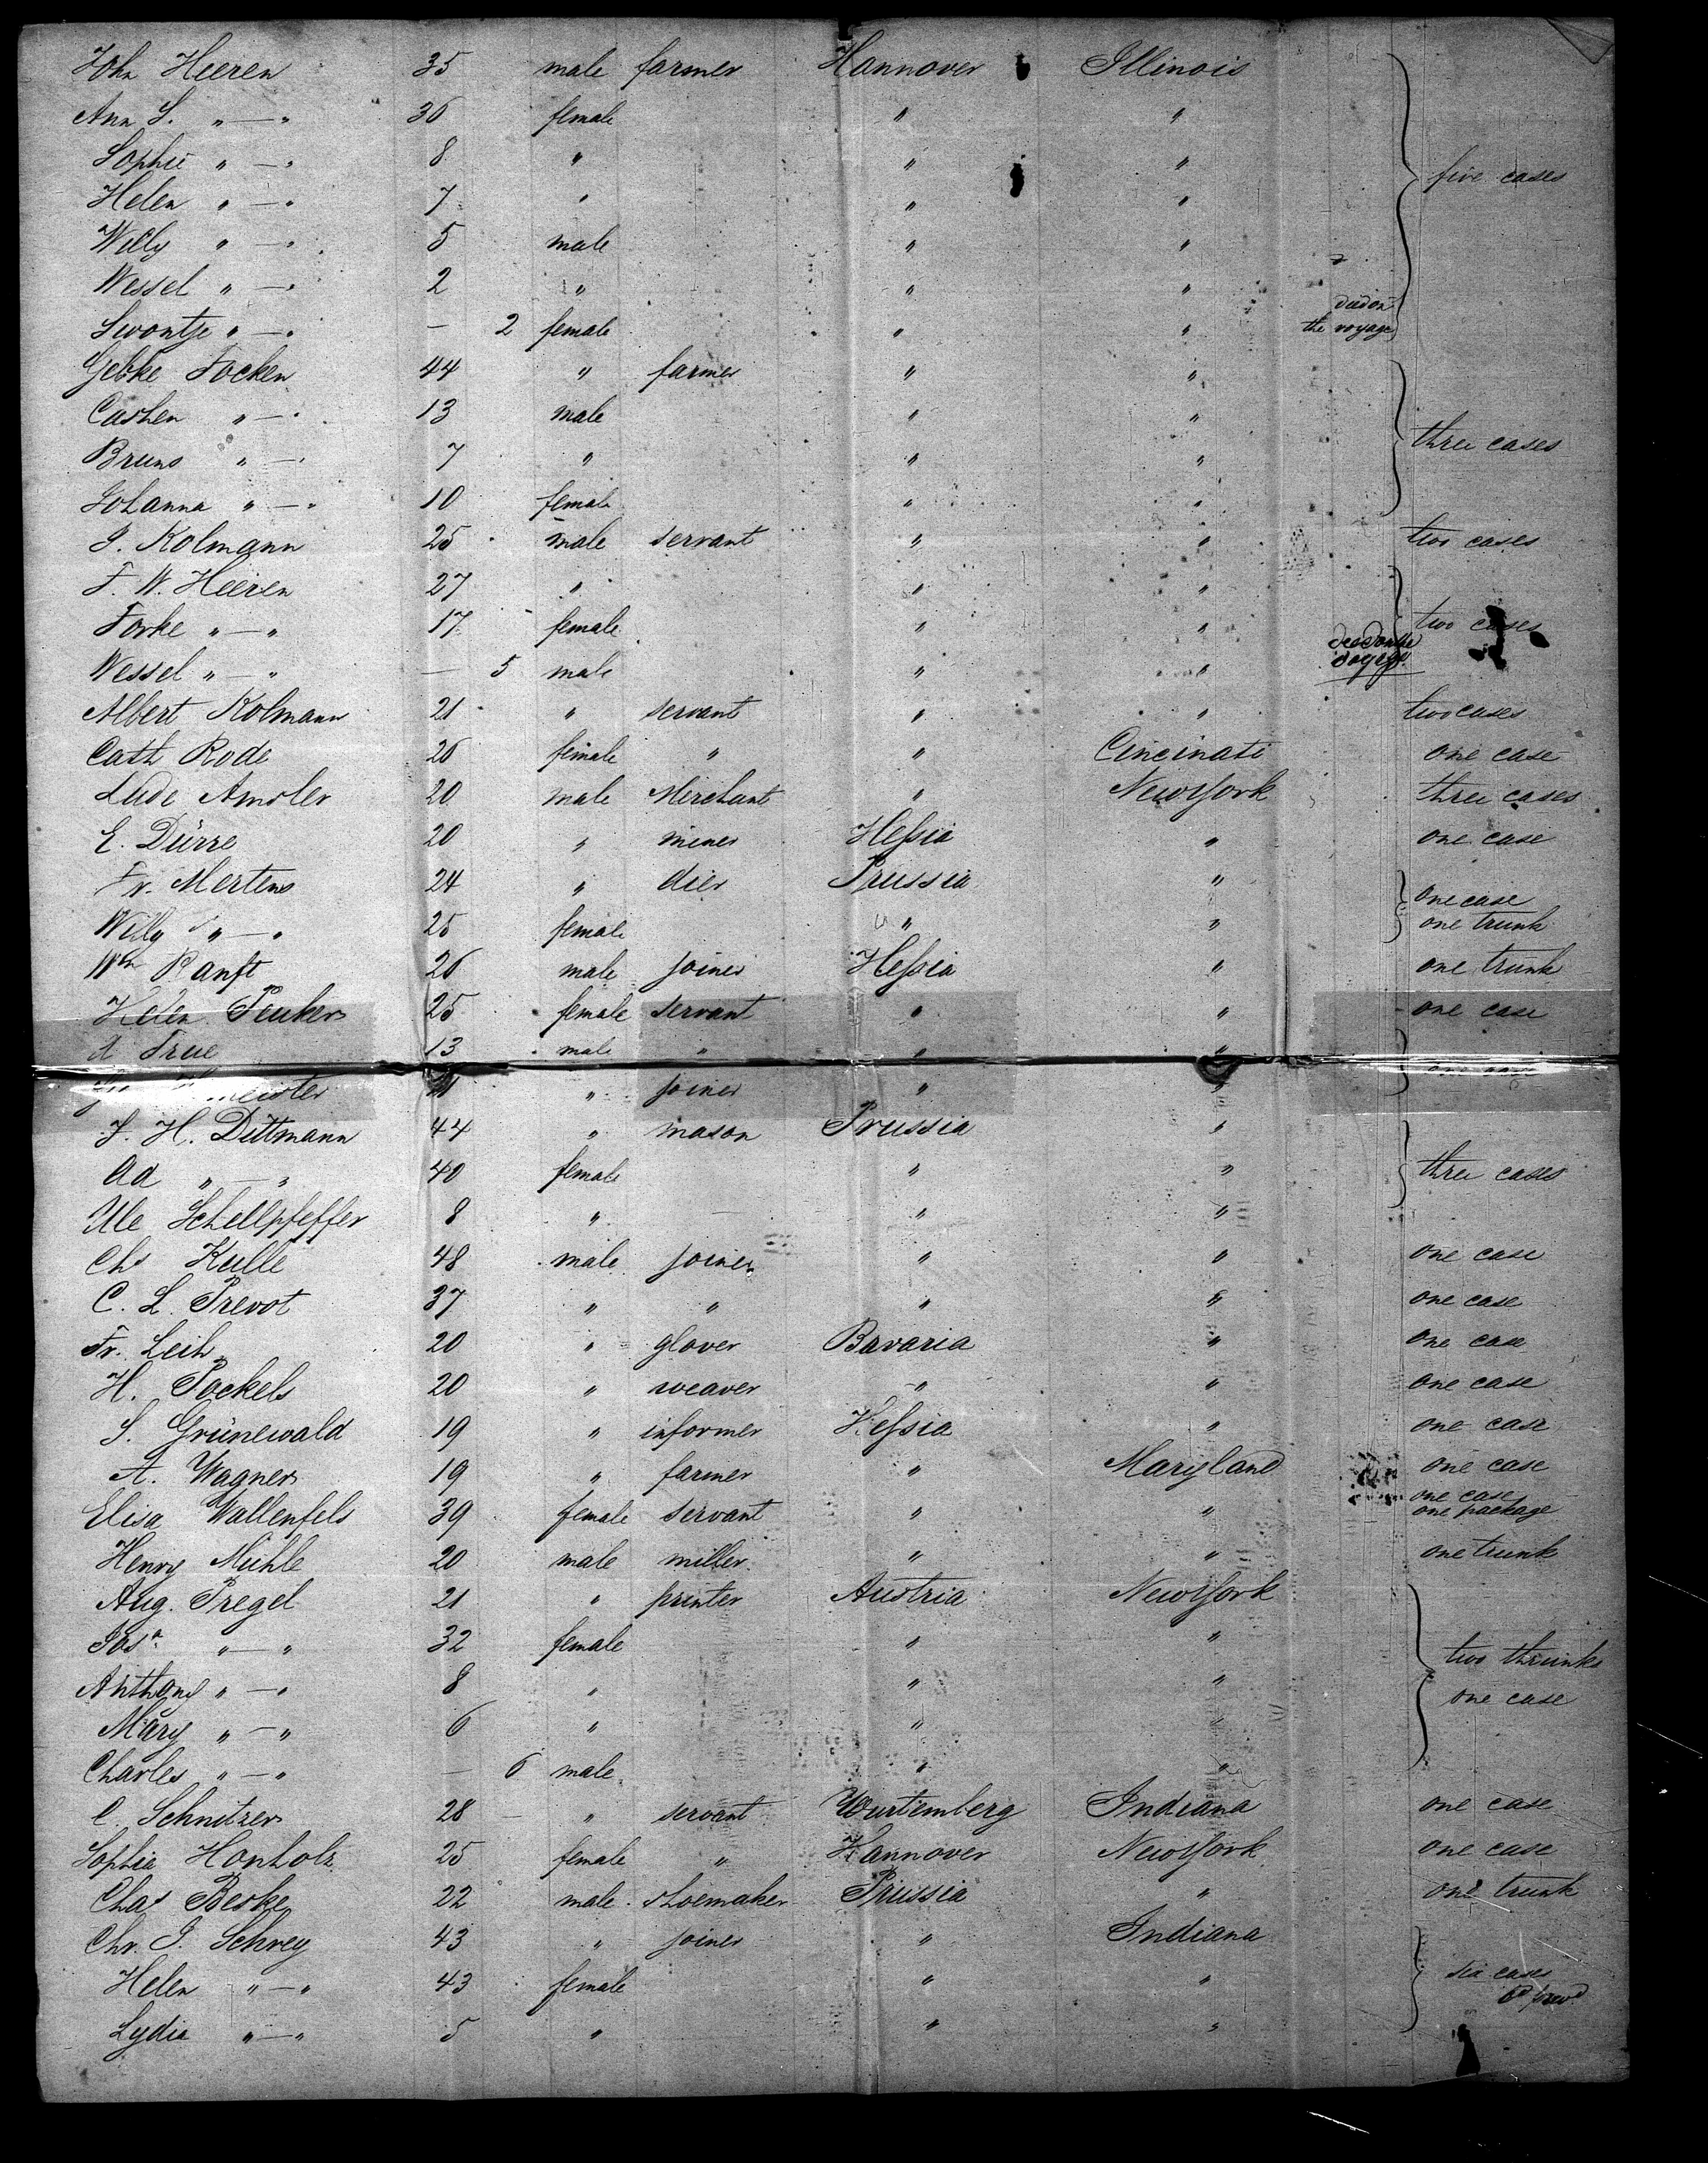 John Heeren 35 male farmer Hannover Illinois
Ann S. " — " 36 female " "
Sophie " — " 8 " " " five cases
Helen " — " 7 " " "
Willy " — " 5 male " "
Wessel " — " 2 " " "
Swontje " — " — 2 female " " died on the voyage
Gebke Focken 44 " farmer " "
Carsten " — " 13 male " "
Bruns " — " 7 " " " three cases
Johanna " — " 10 female " "
J. Kolmann 25 male servant " " two cases
F. W. Heeren 27 " " "
Forke " — " 17 female " " two cases
Wessel " — " — 5 male " " died on the voyage
Albert Kolmann 21 " servant " " two cases
Cath Rode 26 female " " Cincinati one case
Lude Amsler 20 male Merchant " NewYork three cases
E. Dürre 20 " miner Hessia " one case
Fr. Mertens 24 " dier Prussia " one case
Willy " — " 25 female " " one trunk
Wm Ranft 26 male joiner Hessia " one trunk
Helen Peuker 25 female servant " " one case
A True 13 male " " "
meister " joiner " " one case
J. H. Dittmann 44 " mason Prussia "
Ad " — " 40 female " " three cases
Ule Schellpfeffer 8 " — " "
Chs Kulle 48 male joiner " " one case
C. L. Prevot 37 " " " " one case
Fr. Leih 20 " glover Bavaria " one case
H. Pockels 20 " weaver " " one case
S. Grünewald 19 " informer Hessia " one case
A. Wagner 19 " farmer " Maryland one case
Elisa Wallenfels 39 female servant " " one case one package
Henry Mühle 20 male miller " " one trunk
Aug. Pregel 21 " printer Austria NewYork
Josa " — " 32 female " " two thrunks
Anthony " — " 8 " " " one case
Mary " — " 6 " " "
Charles " — " — 6 male " "
C. Schnitzer 28 " servant Würtemberg Indiana one case
Sophia Honholz 25 female " Hannover NewYork one case
Chas Beske 22 male shoemaker Prussia " one trunk
Chr. J. Schrey 43 " joiner " Indiana
Helen " — " 43 female " " six cases
Lydia " — " 5 " " "